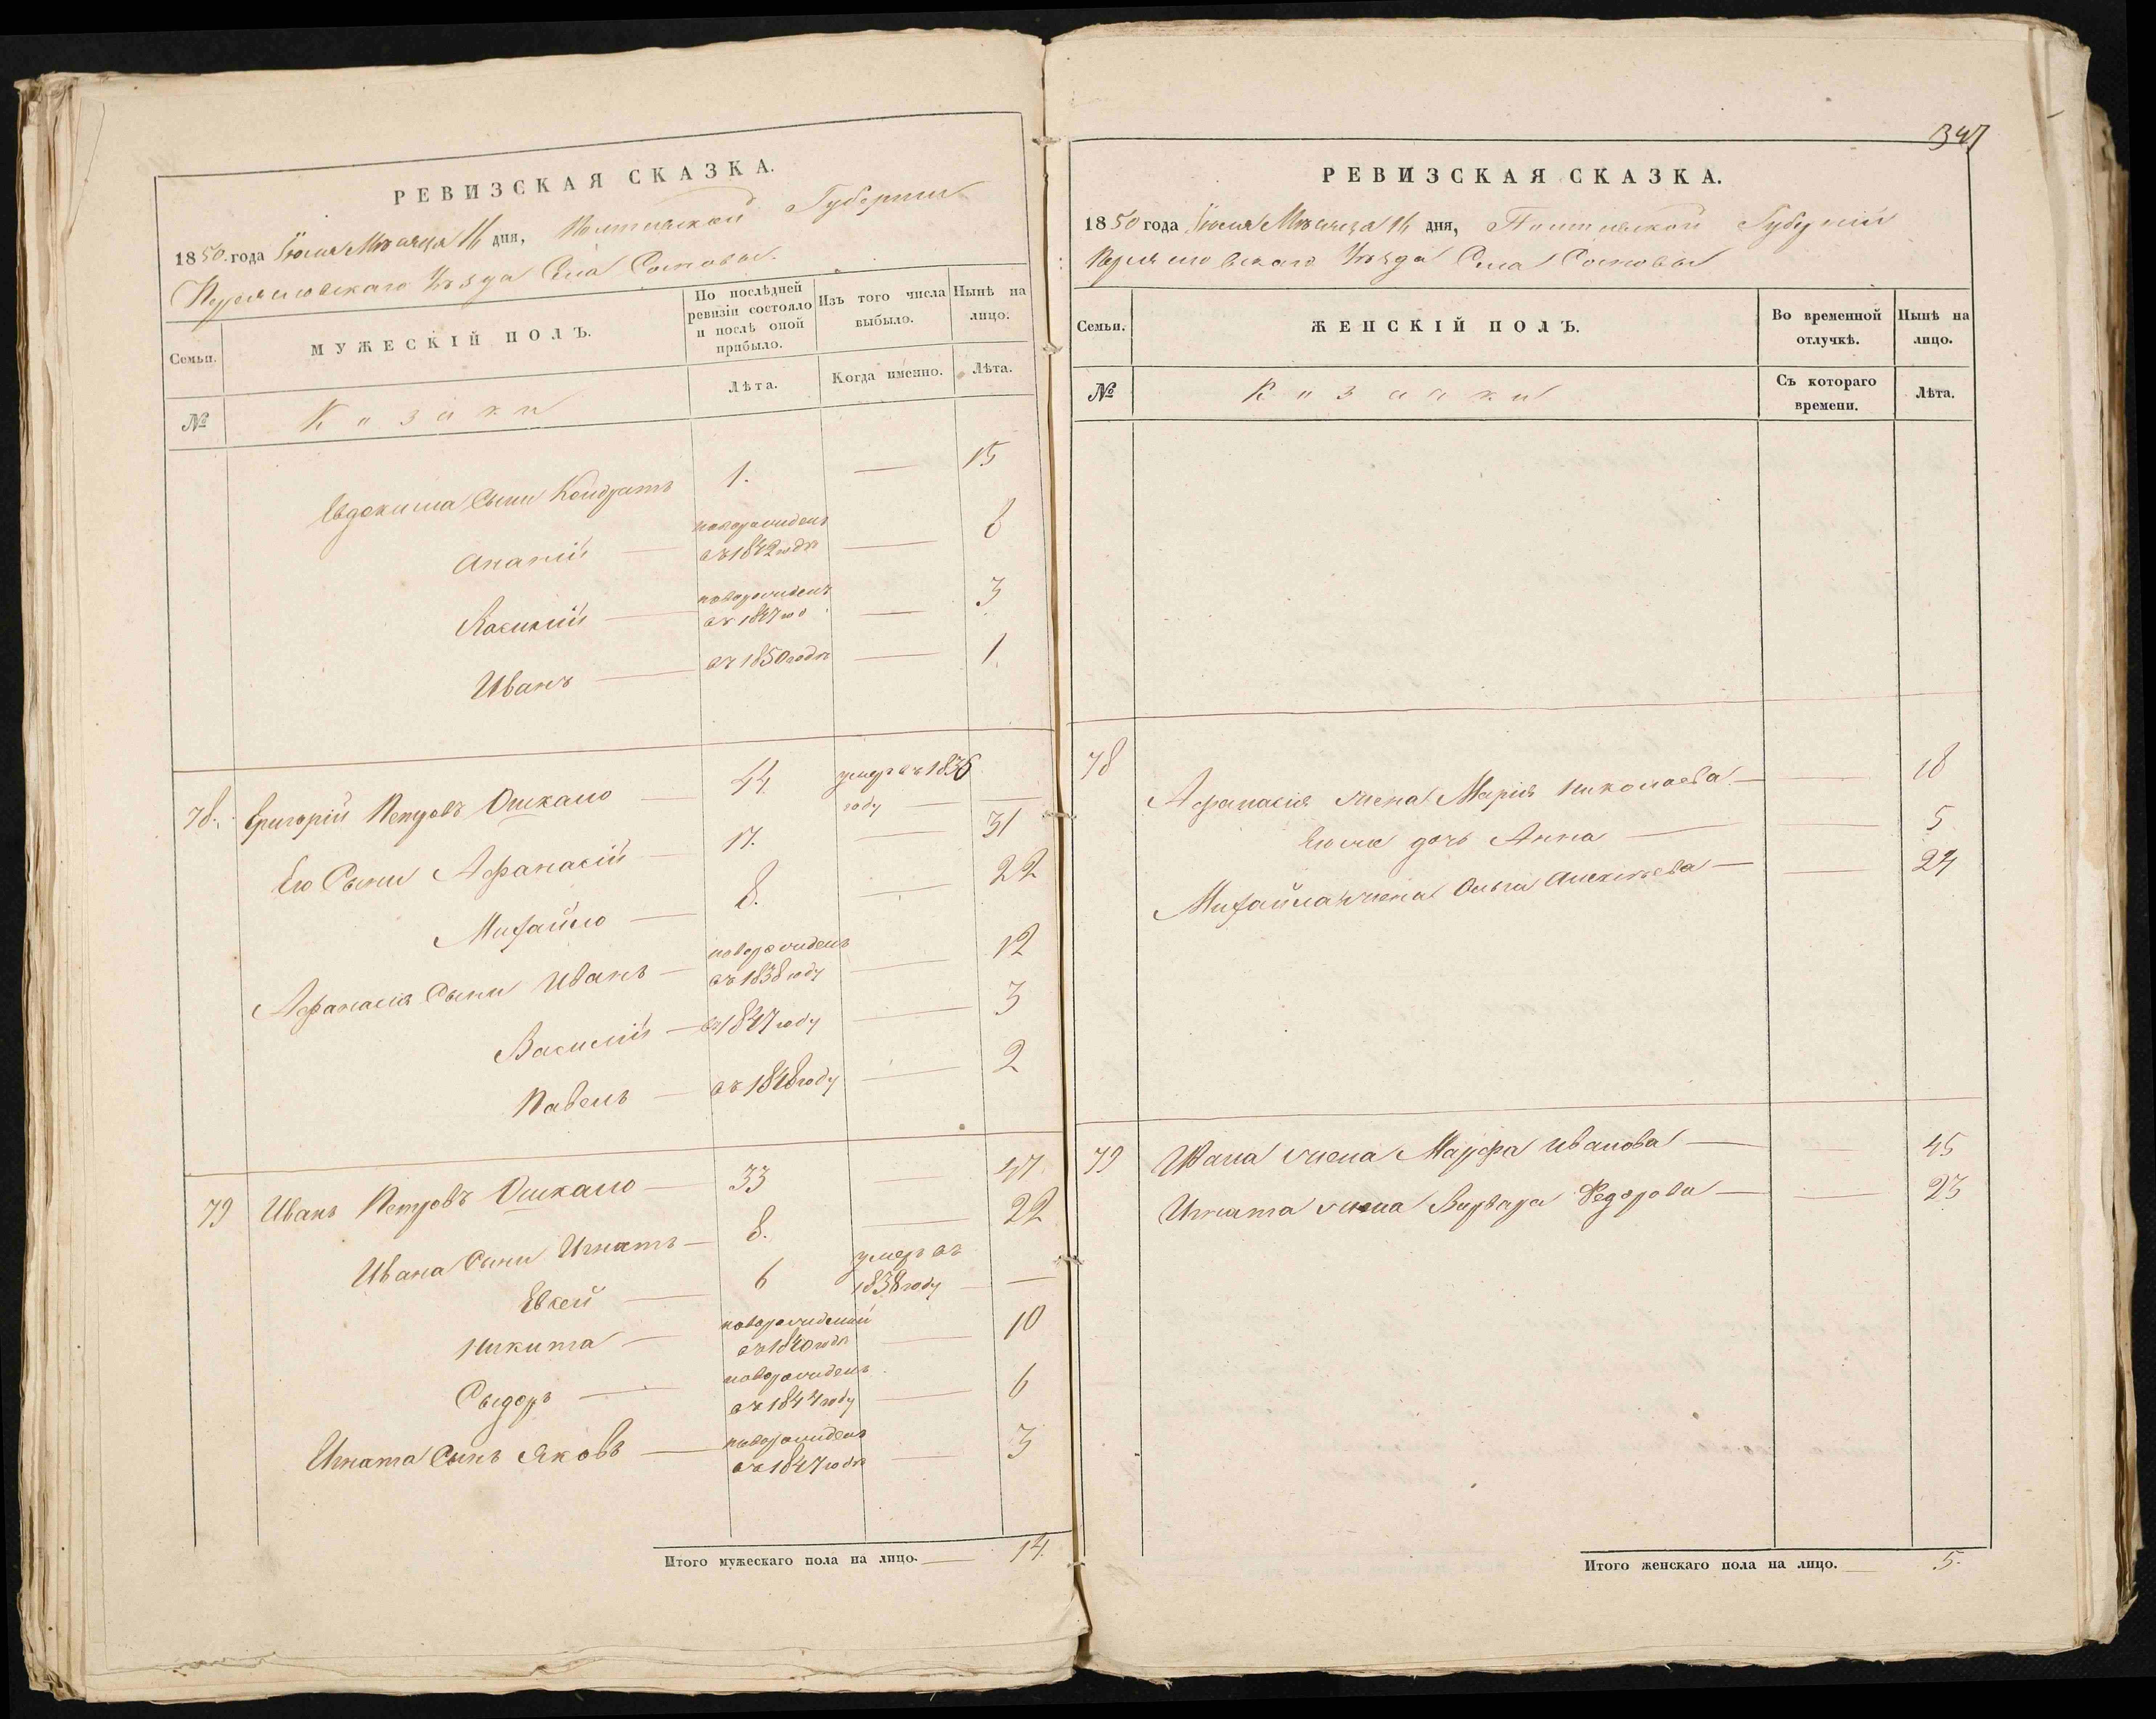 РЕВИЗСКАЯ СКАЗКА.
1850 года Июля Мѣсяца 16 дня, Полтавской Губернии
Переясловскаго Уѣзда Села Сосновы.
Семьи.
МУЖЕСКІЙ ПОЛЪ.
По послѣдней ревизіи состояло и послѣ оной прибыло.
Изъ того числа выбыло.
Нынѣ на лицо.
№
Козаки
Лѣта.
Когда именно.
Лѣта.
Евдокима Сыни Кондратъ 1. — 15
Ананій — новорожденъ въ 1842 годѣ — 8
Василій — новорожденъ въ 1847 год — 3
Иванъ — въ 1850 годѣ — 1.
78. Григорій Петровъ Ошкало — 44 умеръ въ 1836 году —
Его Сыни Афанасій — 17. — 31
Михайло — 8. — 22
Афанасія Сыни Иванъ — новорожденъ въ 1838 году — 12
Василій — въ 1847 году — 3
Павелъ — въ 1848 году — 2
79 Иванъ Петровъ Ошкало — 33 — 47
Ивана Сыни Игнатъ — 8. — 22
Евсей — 6 умеръ въ 1838 году —
Никита — новорожденый въ 1840 годѣ — 10
Сыдоръ — новорожденъ въ 1844 году — 6
Игната Сынъ Яковъ — новорожденъ въ 1847 годѣ — 3
Итого мужескаго пола на лицо. — 14.
347
РЕВИЗСКАЯ СКАЗКА.
1850 года Июля Мѣсяца 16 дня, Полтавской Губернии
Переясловскаго Уѣзда Села Сосновы
Семьи.
ЖЕНСКІЙ ПОЛЪ.
Во временной отлучкѣ.
Нынѣ на лицо.
№
Козачки
Съ котораго времени.
Лѣта.
78 Афанасія жена Марія Николаева — 18
Его же дочь Анна — 5
Михайла жена Ольга Алексѣева — 24
79 Ивана жена Марфа Иванова — 45
Игната жена Варвара Федорова — 23
Итого женскаго пола на лицо. — 5.